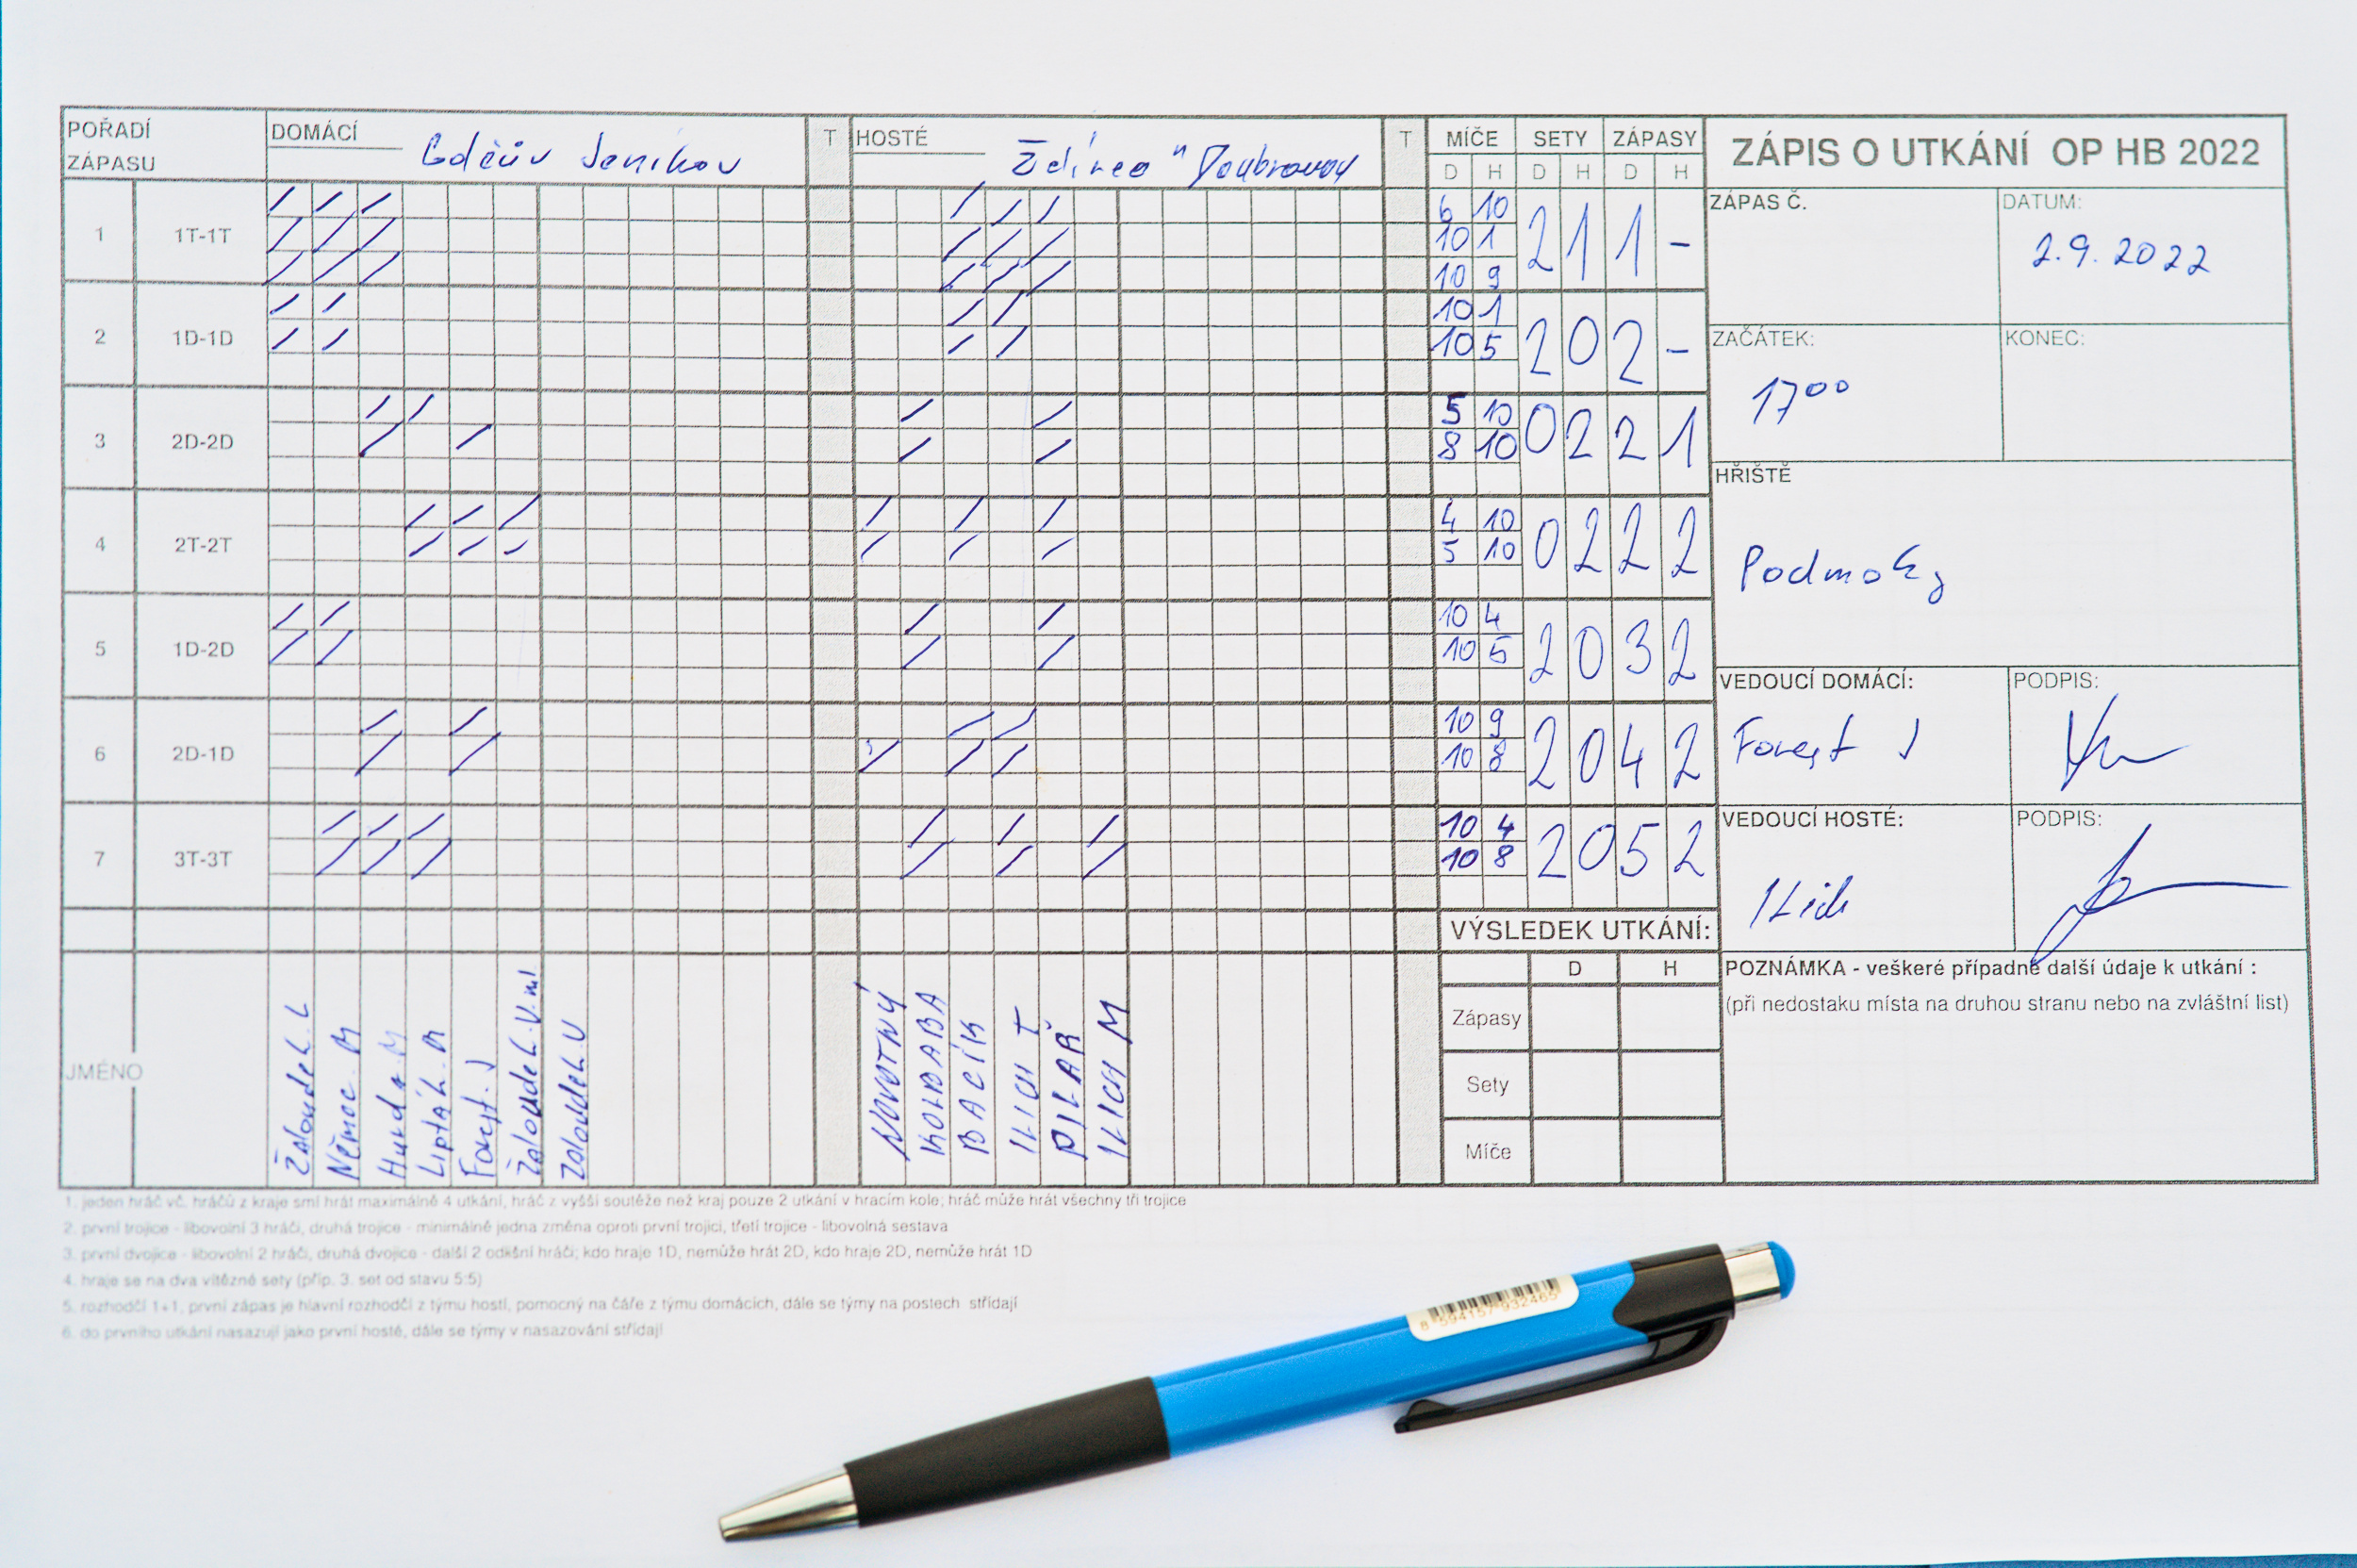 POŘADÍ ZÁPASU
DOMÁCÍ
Jeníkov
T
HOSTÉ
Doubravou
T
MÍČE SETY ZÁPASY
D H D H D H
ZÁPIS O UTKÁNÍ OP HB 2022
1 1T-1T
6 10
10 1
10 9
2 1 1 -
2 1D-1D
10 1
10 5
2 0 2 -
3 2D-2D
5 10
8 10
0 2 2 1
4 2T-2T
4 10
5 10
0 2 2 2
5 1D-2D
10 4
10 5
2 0 3 2
6 2D-1D
10 9
10 8
2 0 4 2
7 3T-3T
10 4
10 8
2 0 5 2
ZÁPAS Č.
DATUM:
2.9.2022
ZAČÁTEK:
17⁰⁰
KONEC:
HŘIŠTĚ
Podmoky
VEDOUCÍ DOMÁCÍ:
Forejt J
PODPIS:
VEDOUCÍ HOSTÉ:
Ilich
PODPIS:
VÝSLEDEK UTKÁNÍ:
D H
Zápasy
Sety
Míče
POZNÁMKA - veškeré případné další údaje k utkání :
(při nedostaku místa na druhou stranu nebo na zvláštní list)
JMÉNO
Žaloudek. L
Němec. M
Lipták. M
Forejt. J
Žaloudek. V. ml
Žaloudek V
NOVOTNÝ
KOLDABA
BACÍK
ILICH T
PILAŘ
ILICH M
1. jeden hráč vč. hráčů z kraje smí hrát maximálně 4 utkání, hráč z vyšší soutěže než kraj pouze 2 utkání v hracím kole; hráč může hrát všechny tři trojice
2. první trojice - libovolní 3 hráči, druhá trojice - minimálně jedna změna oproti první trojici, třetí trojice - libovolná sestava
3. první dvojice - libovolní 2 hráči, druhá dvojice - další 2 odlišní hráči; kdo hraje 1D, nemůže hrát 2D, kdo hraje 2D, nemůže hrát 1D
4. hraje se na dva vítězné sety (příp. 3. set od stavu 5:5)
5. rozhodčí 1+1, první zápas je hlavní rozhodčí z týmu hostí, pomocný na čáře z týmu domácích, dále se týmy na postech střídají
6. do prvního utkání nasazují jako první hosté, dále se týmy v nasazování střídají
8 594157 932465